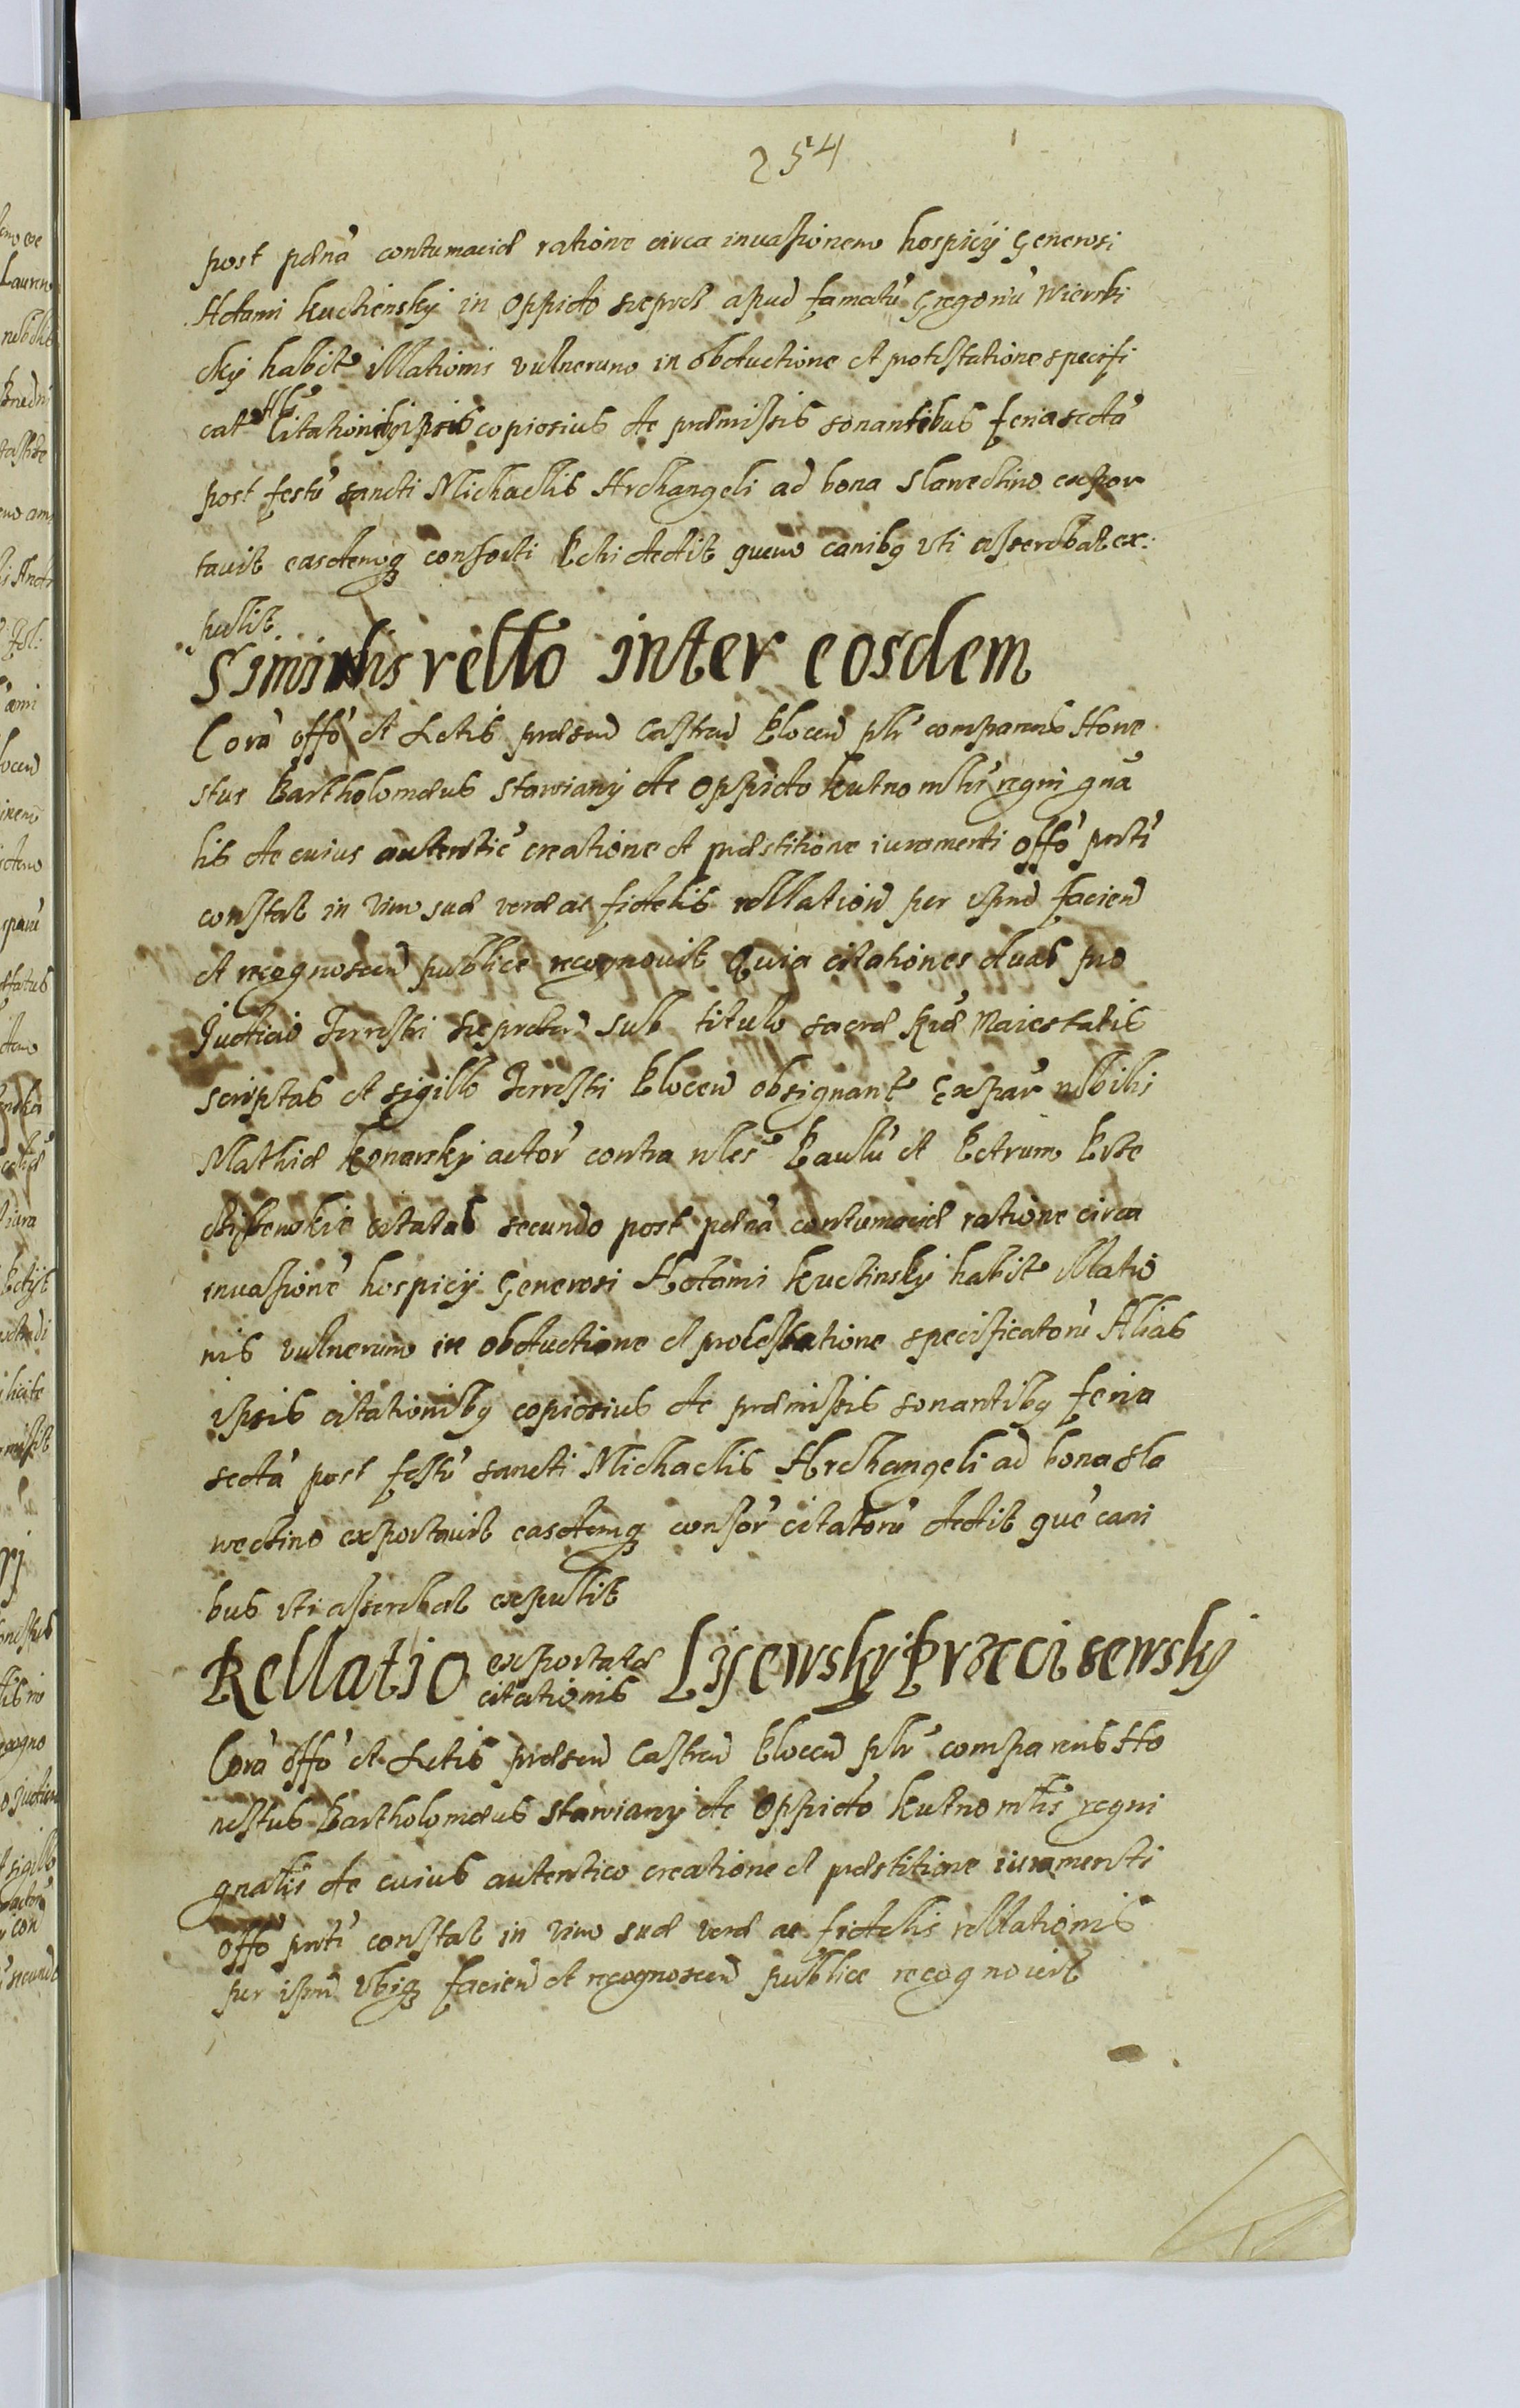 254
post pænā contumaciæ ratione circa invasionem hospicÿ Generosi
Adami Kuchensky in oppido Sieprcz apud famatū Gregoriū Wierzbi
cky habit illationis vulnerum in obductione et protestatione specifi
cat Als Citationibq ipsis copiosius de præmissis sonantibus feria sextā
post festū sancti Michaelis Archangeli ad bona Slaweclino expor
tavit easdemq consorti Petri dedit quem canibq uti asserebat ex:
pullit
Similis rello inter eosdem
Corā offo et Actis præsen Castren Plocen plr comparens Hone
stus Bartholomæus Stawiany de oppido Kutno mlis regni gna
lis de cuius autentic creatione et præstitione iuramenti offo pnti
constat in vim suæ veræ ac fidelis rellation per ipm facien
et recognoscen publice recognovit Quia citationes duas pro
Judicio Terrestri Sieprcen sub titulo sacræ Ræ Maiestatis
scriptas et sigillo Terrestri Plocen obsignant Ex par nobilis
Mathiæ Konarsky actor contra nles Paulū et Petrum Prze
citatas secundo post pænā contumaciæ ratione circa
invasionē hospicÿ Generosi Adami Kuclinsky habit illatio
nis vulnerum in obductione et protestatione specificatorū Alias
ipsis citationibq copiosius de præmissis sonantibq feria
sextā post festū sancti Michaelis Archangeli ad bona Sla
weclino exportavit easdemq consor citatorū dedit quē cani
bus uti asserebat expullit
Rellatio exportatæ citationis Lisewsky Przecisewsky
Corā offo et Actis præsen Castren Plocen plr comparens Ho
nestus Bartholomæus Stawiany de oppido Kutno mlis regni
gnalis de cuius autentico creatione et præstitione iuramenti
offo pnti constat in vim suæ veræ ac fidelis rellationis
per ipm ubiq facien et recognoscen publice recognovit